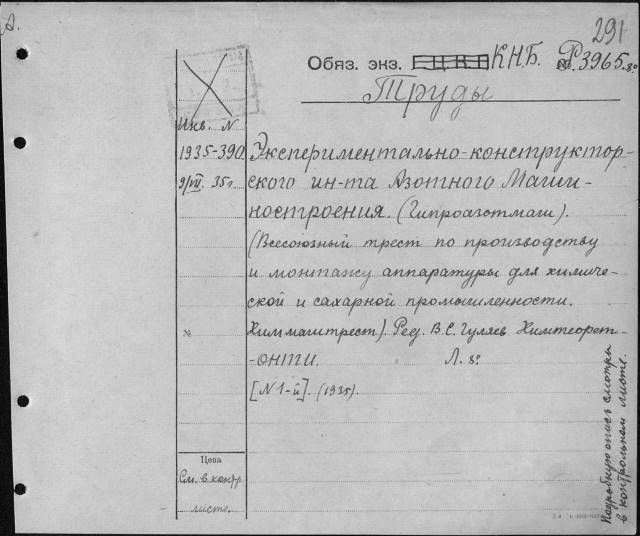 291
Обяз. экз. Ц.К.П. К.Н.Б. № Р3965. 8°
Труды
Инв. N
1935-390
9/VII. 35 г.
Экспериментально-конструктор-
ского ин-та Азотного Маши-
ностроения. (Гипроазотмаш).
(Всесоюзный трест по производству
и монтажу аппаратуры для химиче-
ской и сахарной промышленности.
№ Химмаштрест). Ред. В.С. Гуляев. Химтеорет-
-онти. Л. 8°
[N 1-й]. (1935).
Цена
См. в контр.
листе.
Подробную опись смотри
в контрольном листе.